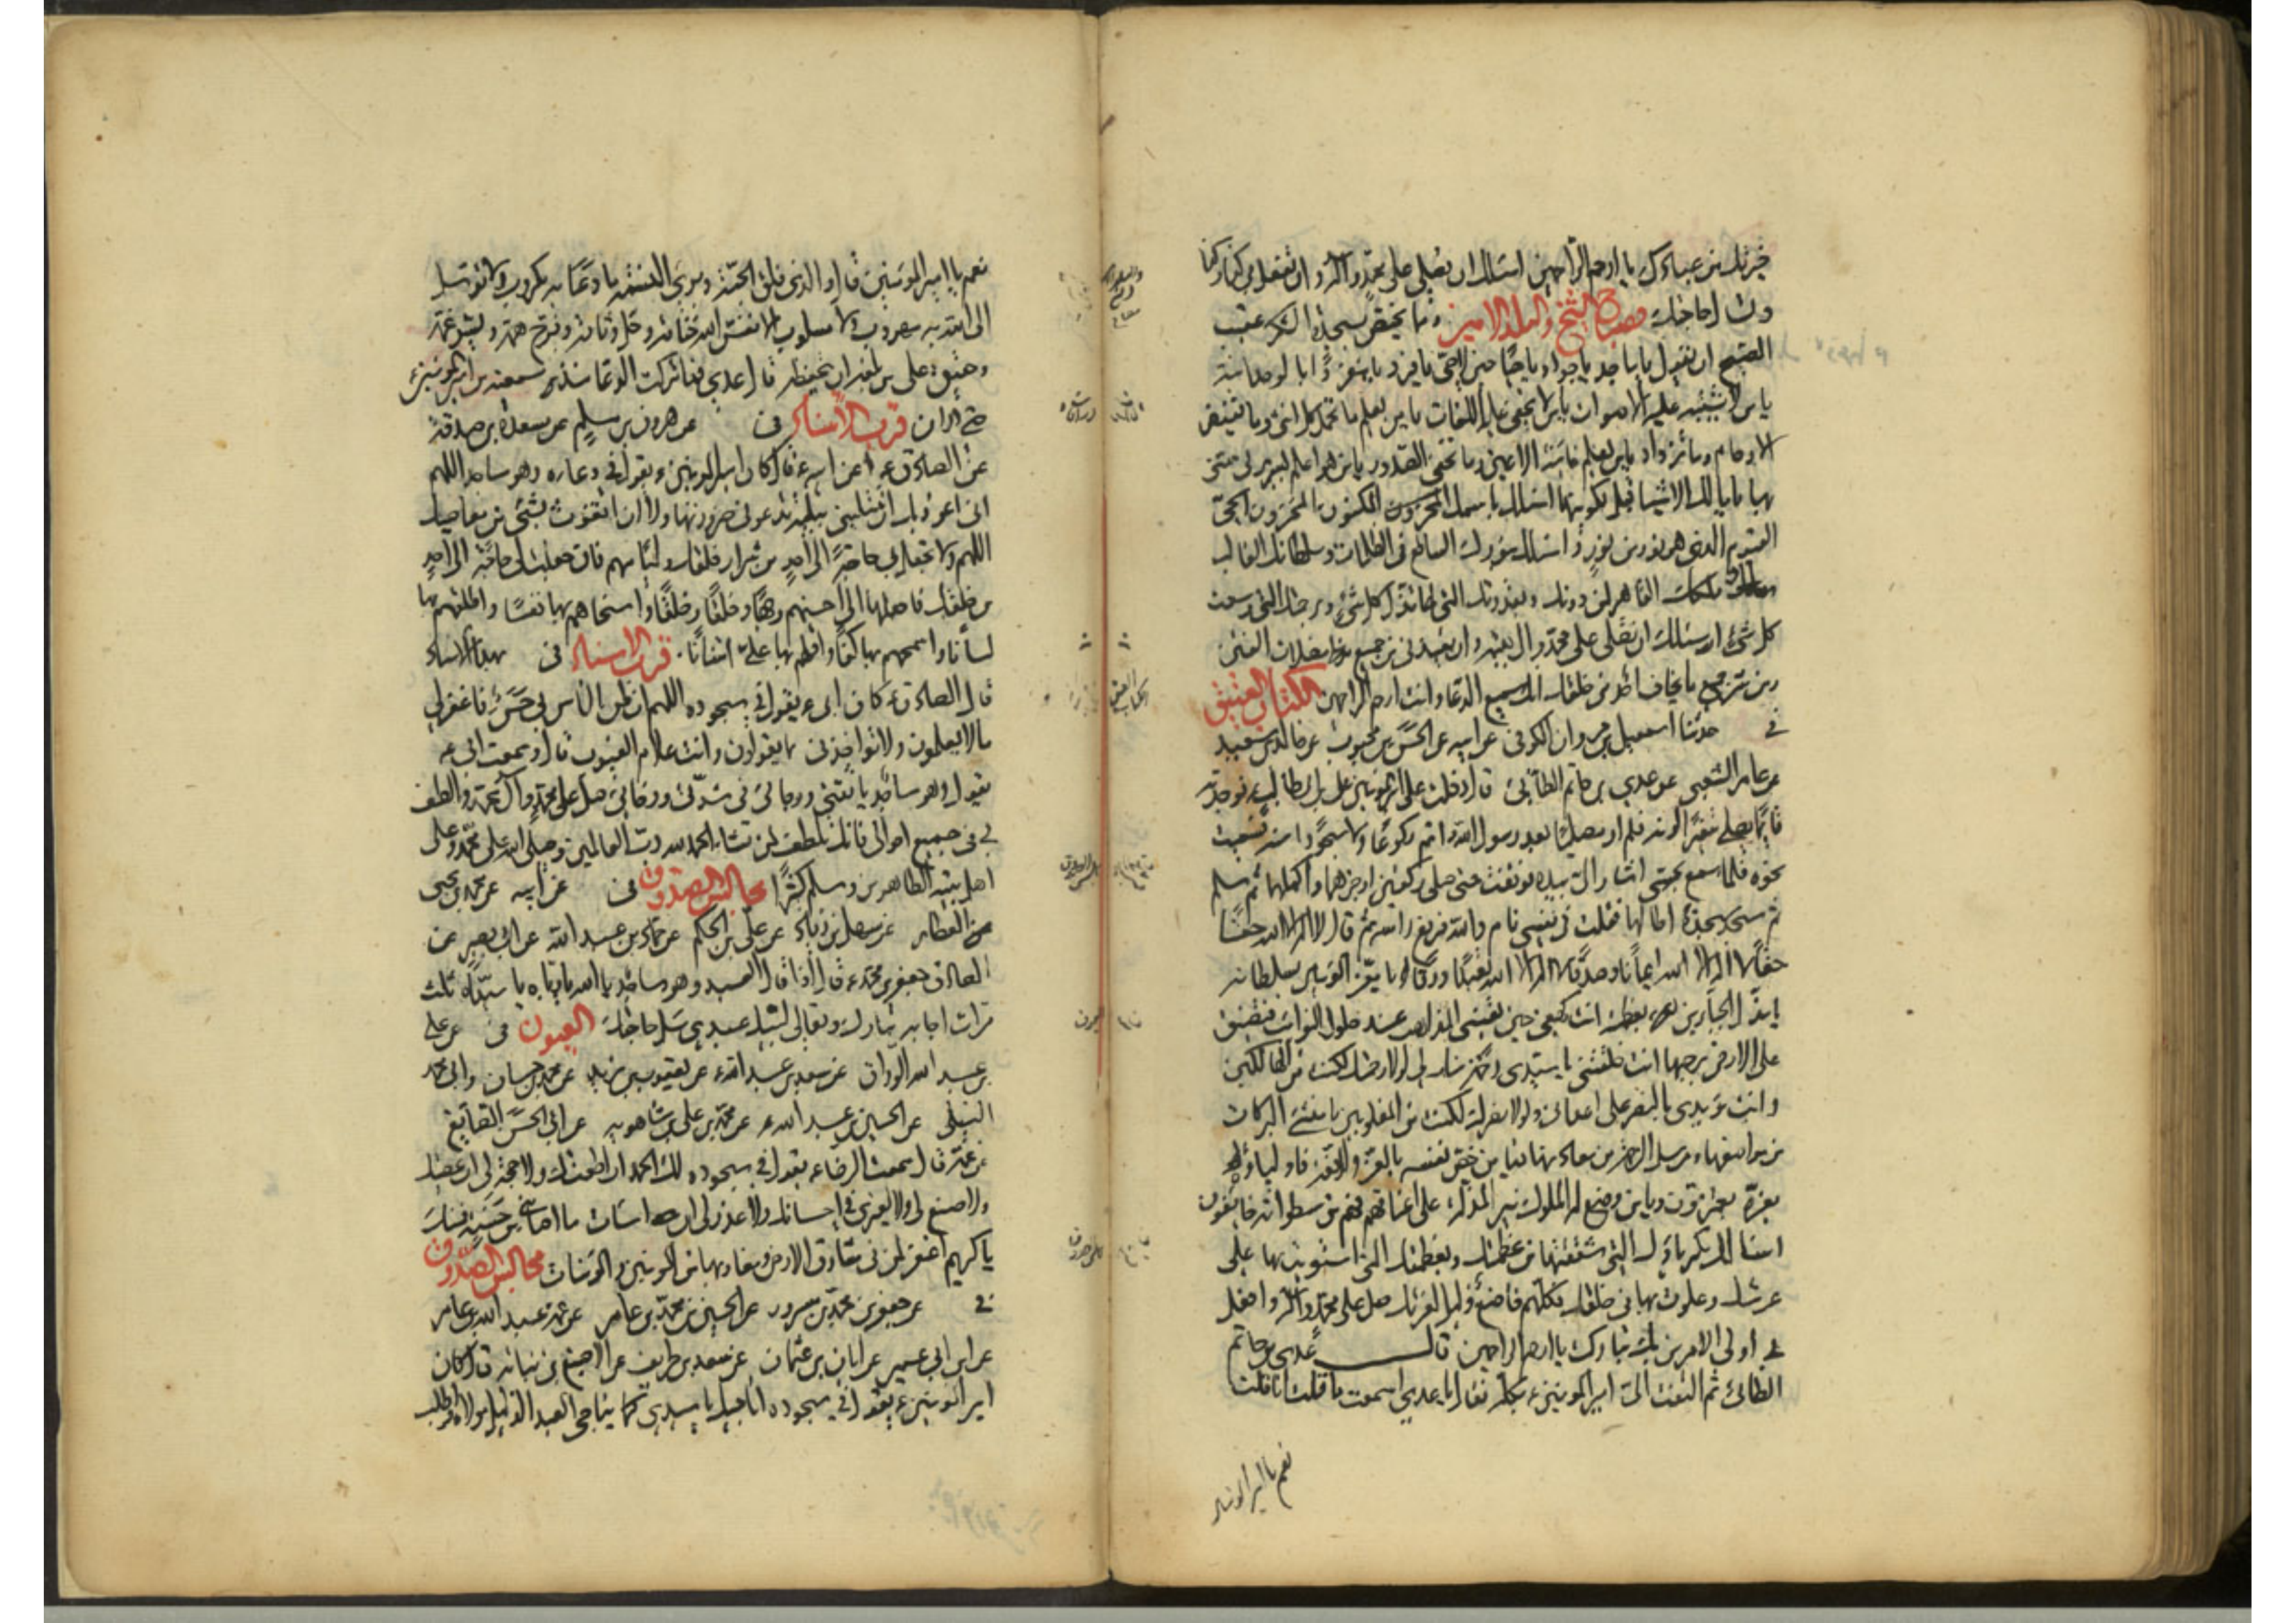 خيرتك من عبادك يا ارحم الراحمين اسئلك ان تصلي على محمد وآله وان تفعل بي كذا وكذا
وتسأل حاجتك مصباح الشيخ والبلد الامين ومما يختص بسجدة الشكر عقيب
الصبح ان تقول يا ماجد يا جواد يا حيا حين لا حي يا فرد يا منفردا بالوحدانية
يا من لا يشتبه عليه الاصوات يا من لا يخفى عليه اللغات يا من يعلم ما تحمل كل انثى وما تغيض
الارحام وما تزداد يا من يعلم خائنة الاعين وما تخفي الصدور يا من هو اعلم بسريرتي مني
بها يا مالك الاشياء قبل تكوينها اسئلك باسمك المكنون المخزون الحي
القيوم الذي هو نور من نور واسئلك بنورك الساطع في الظلمات وسلطانك الغالب
وملكك القاهر لمن دونك وبقدرتك التي بها تذل كل شيء وبرحمتك التي وسعت
كل شيء اسئلك ان تصلي على محمد وآل بيته وان تعيذني من جميع مضلات الفتن
ومن شر جميع ما يخاف احد من خلقك انك سميع الدعاء وانت ارحم الراحمين الكتاب العتيق
في حدثنا اسمعيل بن مروان الكوفي عن ابيه عن الحسن بن محبوب عن خالد بن سعيد
عن عامر الشعبي عن عدي بن حاتم الطائي قال دخلت على امير المؤمنين علي بن ابي طالب فوجدته
قائما يصلي متغيرا لونه فلم ار مصليا بعد رسول الله اتم ركوعا ولا سجودا منه فسعيت
نحوه فلما سمع بحسي اشار الي بيده فوقفت حتى صلى ركعتين اوجزهما واكملهما ثم سلم
ثم سجد سجدة اطالها فقلت في نفسي نام والله فرفع رأسه ثم قال لا اله الا الله حقا
حقا لا اله الا الله ايمانا وصدقا لا اله الا الله تعبدا ورقا يا معز المؤمنين بسلطانه
يا مذل الجبارين بعظمته انت كهفي حين تعييني المذاهب عند حلول النوائب فتضيق
علي الارض برحبها انت خلقتني يا سيدي رحمة منك لي ولولا رحمتك لكنت من الهالكين
وانت مؤيدي بالنصر على اعدائي ولولا نصرك لكنت من المغلوبين يا منشئ البركات
من مواضعها ومرسل الرحمة من معادنها فيا من خص نفسه بالعز والرفعة فاولياؤه
بعزه يعتزون ويا من وضع له الملوك نير المذلة على اعناقهم فهم من سطواته خائفون
اسئلك بكبريائك التي شققتها من عظمتك وبعظمتك التي استويت بها على
عرشك وعلوت بها في خلقك فكلهم خاضع ذليل لعزتك صل على محمد وآله وافعل
بي اولى الامرين بك تباركت يا ارحم الراحمين قال عدي بن حاتم
الطائي ثم التفت الي امير المؤمنين ع بكله فقال يا عدي اسمعت ما قلت انا قلت
نعم يا امير المؤمنين
نعم يا امير المؤمنين قال والذي فلق الحبة وبرى النسمة ما دعا به مكروب ولا توسل
الى الله به محروب ولا مسلوب الا نفس الله خناقه وحل وثاقه وفرج همه ويسر غمه
وحقيق على من بلغه ان يحفظه قال عدي فما تركت الدعاء منذ سمعته من امير المؤمنين ع
حتى الان قرب الاسناد في عن هرون بن مسلم عن مسعدة بن صدقة
عن الصادق ع عن ابيه ع قال كان امير المؤمنين ع يقول في دعائه وهو ساجد اللهم
اني اعوذ بك ان تبتليني ببلية تدعوني ضرورتها ولا ان اتغوث بشيء من معاصيك
اللهم ولا تجعل لي حاجة الى احد من شرار خلقك ولئامهم فان جعلت لي حاجة الى احد
من خلقك فاجعلها الى احسنهم وجها وخلقا وخلقا واسخاهم بها نفسا واطلقهم بها
لسانا واسمحهم بها كفا واقلهم بها علي امتنانا. قرب الاسناد في بهذا الاسناد
قال الصادق ع كان ابي ع يقول في سجوده اللهم ان ظن الناس بي حسن فاغفر لي
ما لا يعلمون ولا تؤاخذني بما يقولون وانت علام الغيوب قال وسمعت ابي ع
يقول وهو ساجد يا ثقتي ورجائي في شدتي ورخائي صل على محمد وآل محمد والطف
لي في جميع احوالي فانك تلطف لمن تشاء والحمد لله رب العالمين وصلى الله على محمد وعلى
اهل بيته الطاهرين وسلم كثيرا مجالس الصدوق في عن ابيه عن محمد بن يحيى
العطار عن سهل بن زياد عن علي بن الحكم عن حماد بن عبد الله عن ابي بصير عن
الصادق جعفر بن محمد ع قال اذا قال العبد وهو ساجد يا الله يا رباه يا سيداه ثلث
مرات اجابه تبارك وتعالى لبيك عبدي سل حاجتك العيون في عن علي
بن عبد الله الوراق عن سعد بن عبد الله عن يعقوب بن يزيد عن محمد بن حسان وابي محمد
النيلي عن الحسين بن عبد الله عن محمد بن علي بن شاهويه عن ابي الحسن الصايغ
عن عمه قال سمعت الرضا ع يقول في سجوده لك الحمد ان اطعتك ولا حجة لي ان عصيتك
ولا صنع لي ولا لغيري في احسانك ولا عذر لي ان اسات ما اصابني من حسنة فمنك
يا كريم اغفر لمن في مشارق الارض ومغاربها من المؤمنين والمؤمنات مجالس الصدوق
في عن جعفر بن محمد بن مسرور عن الحسين بن محمد بن عامر عن عمه عبد الله بن عامر
عن ابن ابي عمير عن ابان بن عثمان عن سعد بن طريف عن الاصبغ بن نباته قال كان
امير المؤمنين ع يقول في سجوده اناجيك يا سيدي كما يناجي العبد الذليل مولاه واطلب